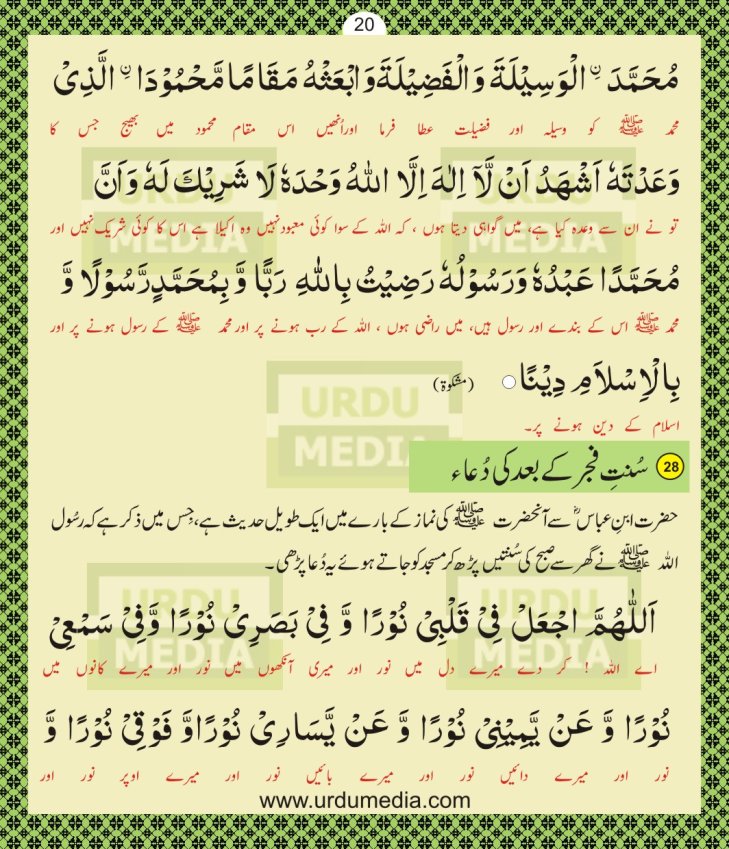 20
مُحَمَّدَ ۨ الْوَسِيْلَةَ وَالْفَضِيْلَةَ وَابْعَثْهُ مَقَامًا مَّحْمُوْدَا ۨ الَّذِىْ
محمد ﷺ کو وسیلہ اور فضیلت عطا فرما اوراُنھیں اس مقام محمود میں بھیج جس کا
وَعَدْتَهٗ اَشْهَدُ اَنْ لَّآ اِلٰهَ اِلَّا اللهُ وَحْدَهٗ لَا شَرِيْكَ لَهٗ وَاَنَّ
تو نے ان سے وعدہ کیا ہے، میں گواہی دیتا ہوں ، کہ اللہ کے سوا کوئی معبودنہیں وہ اکیلا ہے اس کا کوئی شریک نہیں اور
مُحَمَّدًا عَبْدُهٗ وَرَسُوْلُهٗ رَضِيْتُ بِاللهِ رَبًّا وَّبِمُحَمَّدٍ رَّسُوْلًا وَّ
محمد ﷺ اس کے بندے اور رسول ہیں، میں راضی ہوں ، اللہ کے رب ہونے پر اور محمد ﷺ کے رسول ہونے پر اور
بِالْاِسْلَامِ دِيْنًا ○ (مشکوٰۃ)
اسلام کے دین ہونے پر۔
28 سُنتِ فجر کے بعد کی دُعاء
حضرت ابنِ عباسؓ سے آنحضرت ﷺ کی نماز کے بارے میں ایک طویل حدیث ہے، جِس میں ذکر ہے کہ رسُول
اللہ ﷺ نے گھر سے صبح کی سُنتیں پڑھ کر مسجد کو جاتے ہوئے یہ دُعا پڑھی۔
اَللّٰهُمَّ اجْعَلْ فِىْ قَلْبِىْ نُوْرًا وَّ فِىْ بَصَرِىْ نُوْرًا وَّفِىْ سَمْعِىْ
اے اللہ ! کر دے میرے دل میں نور اور میری آنکھوں میں نور اور میرے کانوں میں
نُوْرًا وَّ عَنْ يَّمِيْنِىْ نُوْرًا وَّ عَنْ يَّسَارِىْ نُوْرًا وَّ فَوْقِىْ نُوْرًا وَّ
نور اور میرے دائیں نور اور میرے بائیں نور اور میرے اوپر نور اور
www.urdumedia.com
URDU
MEDIA
URDU
MEDIA
URDU
MEDIA
URDU
MEDIA
URDU
MEDIA